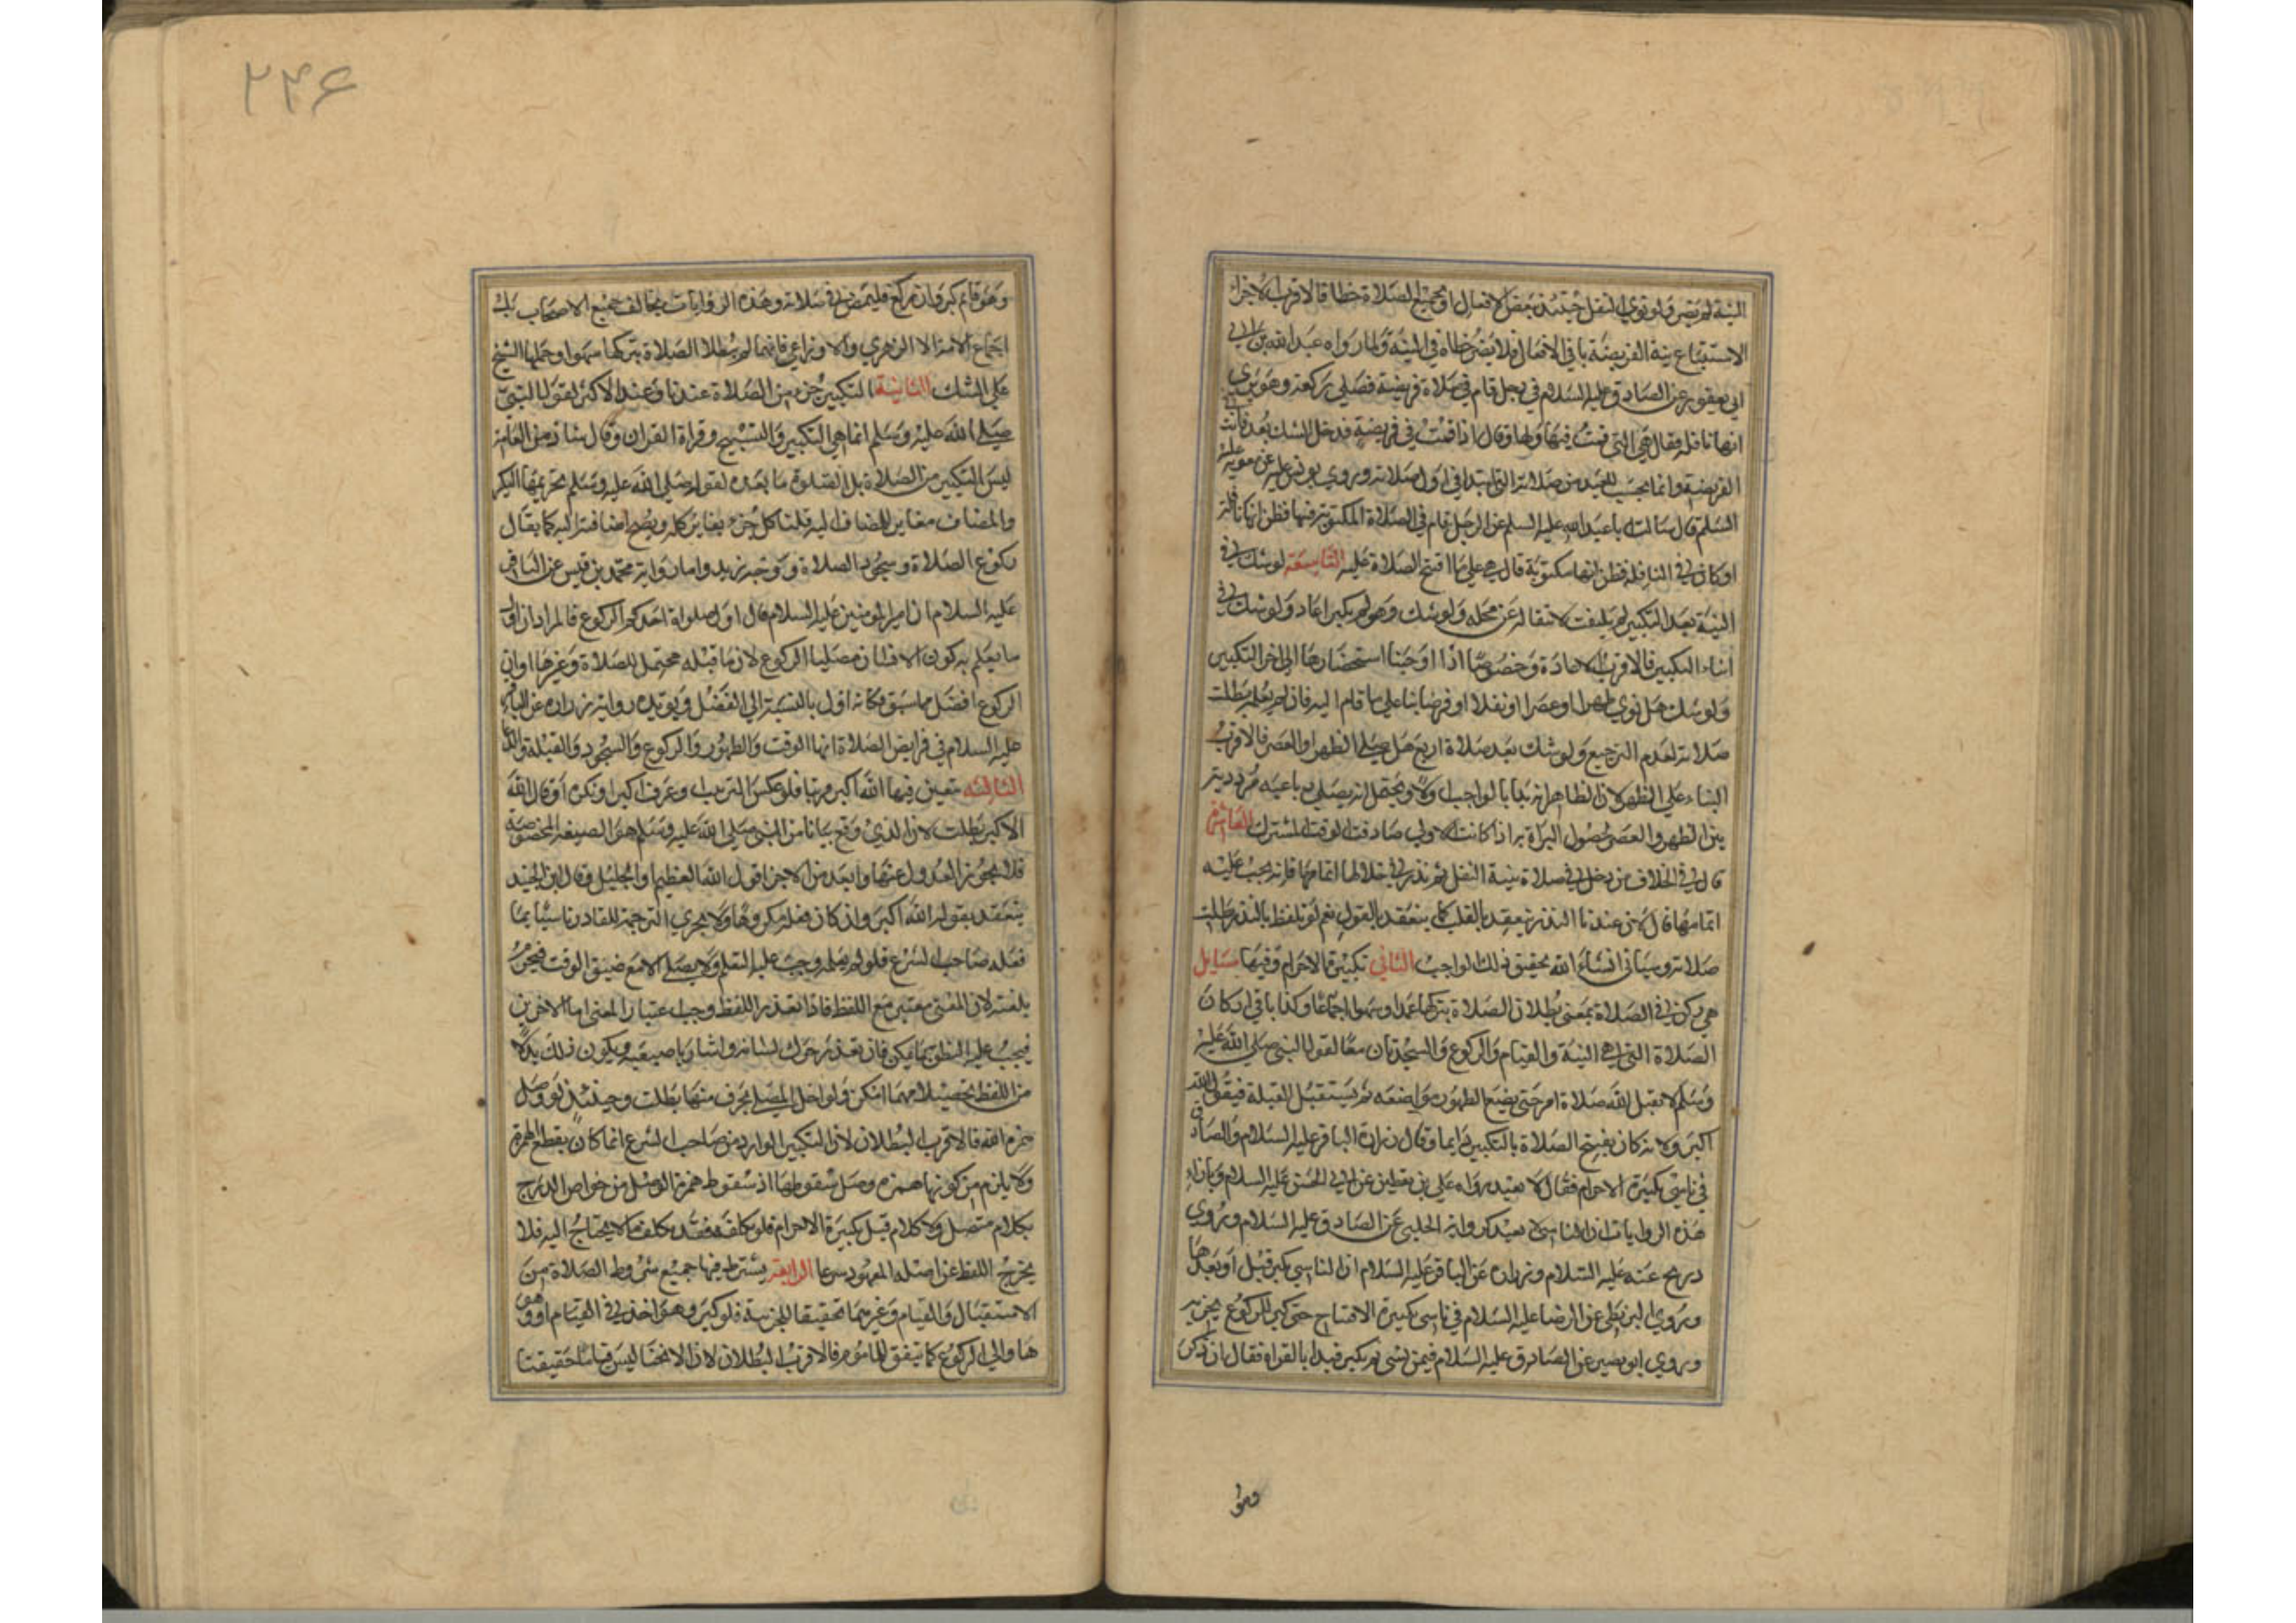 النية لم يضر ولو نوى النفل حينئذ ببعض الافعال او بجميع الصلاة خطا فالاقرب الاجزا
الاستتباع نية الفريضة باقي الافعال فلا يضر خطاه في النية ولما رواه عبد الله بن ابي
ابي يعفور عن الصادق عليه السلام في رجل قام في صلاة فريضة فصلى ركعة وهو يرى
انها نافلة فقال هي التي قمت فيها ولها وقال اذا قمت في فريضة فدخل الشك بعد فانت في
الفريضة وانما يحسب للعبد من صلاته التي ابتدا في اول صلاته وروى يونس عن معوية عليه
السلم قال سالت ابا عبد الله عليه السلم عن الرجل قام في الصلاة المكتوبة فيها فظن انها نافلة
او كان في النافلة فظن انها مكتوبة قال هي على ما افتتح الصلاة عليه التاسعة لو شك في
النية بعد التكبير لم يلتفت لانتقاله عن محله ولو شك وهو لم يكبر اعاد ولو شك في
اثناء التكبير فالاقرب الاعادة وخصوصا اذا اوجبنا استحضارها الى اخر التكبير
ولو شك هل نوى ظهرا او عصرا او نفلا او فرضا بنا على ما قام اليه فان لم يعلم بطلت
صلاته لعدم الترجيع ولو شك بعد صلاة اربع هل صلى الظهر او العصر فالاقرب
البناء على الظهر لان الظاهر انه بدا بالواجب اولا ويحتمل انه يصلي رباعية مرددة
بين الظهر والعصر لحصول البراة به اذا كانت الاولى صادفت الوقت المشترك العاشرة
قال في الخلاف من دخل في صلاة بنية النفل ثم نذر في خلالها اتمامها فانه يجب عليه
اتمامها قال لان عندنا النذر ينعقد بالقلب كما ينعقد بالقول نعم لو تلفظ بالنذر بطلت
صلاته وسياتي انشاء الله تحقيق ذلك الواجب الثاني تكبيرة الاحرام وفيها مسايل
هي ركن في الصلاة بمعنى بطلان الصلاة بتركها عمدا وسهوا اجماعا وكذا باقي اركان
الصلاة التي هي النية والقيام والركوع والسجدتان معا لقول النبي صلى الله عليه
وسلم لا تقبل الله صلاة امر حتى يضع الطهور مواضعه ثم يستقبل القبلة فيقول الله
اكبر ولانه كان يفتتح الصلاة بالتكبير دايما وقال زرارة الباقر عليه السلام والصادق
في ناسي تكبيرة الاحرام فقال لا يعيد رواه علي بن يقطين عن ابي الحسن عليه السلام وبازاء
هذه الروايات ان الناسي لا يعيد كرواية الحلبي عن الصادق عليه السلام وروى
ذريح عنه عليه السلام وزرارة عن الباقر عليه السلام ان الناسي يكبر قبل او بعدها
وروى البزنطي عن الرضا عليه السلام في ناسي تكبيرة الافتتاح حتى كبر للركوع يجزيه
وروى ابو بصير عن الصادق عليه السلام فيمن نسي ثم يكبر فبدا بالقراة فقال ان ذكر
وهو
٢٤۶
وهو قايم كبر وان ركع فليمض في صلاته وهذه الروايات تخالف جميع الاصحاب بل
اجماع الامة الا الزهري والاوزاعي فانهما لم يبطلا الصلاة بتركها سهوا وحملها الشيخ
على الشك الثانية التكبير جزء من الصلاة عندنا وعند الاكثر لقول النبي
صلى الله عليه وسلم انما هي التكبير والتسبيح وقراة القران وقال شاذ من العامة
ليس التكبير من الصلاة بل الصلوة ما بعده لقوله صلى الله عليه وسلم تحريمها التكبير
والمضاف مغاير للمضاف اليه قلنا كل جزء يغاير كله ويصح اضافته اليه كما يقال
ركوع الصلاة وسجود الصلاة ووجه زيد واما رواية محمد بن قيس عن الباقر
عليه السلام ان امير المومنين عليه السلام قال اول صلواة احدكم الركوع فالمراد ان اول
ما يعلم به كون الانسان مصليا الركوع لان ما قبله محتمل للصلاة وغيرها او ان
الركوع افضل مما سبق فكانه اول بالنسبة الى الفضل ويويده رواية زرارة عن الباقر
عليه السلام في فرايض الصلاة انها الوقت والطهور والركوع والسجود والقبلة والدعا
الثالثة يتعين فيها الله اكبر مرتبا فلو عكس الترتيب او عرف اكبر او نكره او قال الله
الاكبر بطلت لان الذي وقع بيانا من النبي صلى الله عليه وسلم هو الصيغة المخصوصة
فلا يجوز العدول عنها وابعد من الاجزا قول الله العظيم او الجليل وقال ابن الجنيد
ينعقد بقوله الله اكبر وان كان فعله مكروها ولا يجزي الترجمة للقادر تاسيا بما
فعله صاحب الشرع فلو لم يعلم وجب عليه التعلم ولا يصلي الا مع ضيق الوقت فيحرم
بلغته لان المعنى معتبر مع اللفظ فاذا تعذر اللفظ وجب اعتبار المعنى اما الاخرس
فيجب عليه النطق بما يمكن فان تعذر حرك لسانه واشار باصبعه ويكون ذلك بدلا
من اللفظ تحصيلا مهما امكن ولو اخل المصلي بحرف منها بطلت وحينئذ لو وصل
همزة الله فالاقرب البطلان لان التكبير الوارد من صاحب الشرع انما كان بقطع الهمزة
ولا يلزم من كونها همزه وصل سقوطها اذ سقوط همزة الوصل من خواص الدرج
بكلام متصل ولا كلام قبل تكبيرة الاحرام فلو تكلفه فقد تكلف ما لا يحتاج اليه فلا
يخرج اللفظ عن اصله المعهود شرعا الرابعة يشترط فيها جميع شروط الصلاة من
الاستقبال والقيام وغيرهما تحقيقا للجزيئة فلو كبر وهو اخذ في القيام او وهو
هاو الى الركوع كما يتفق للماموم فالاقرب البطلان لان الانحنا ليس قياما حقيقتا